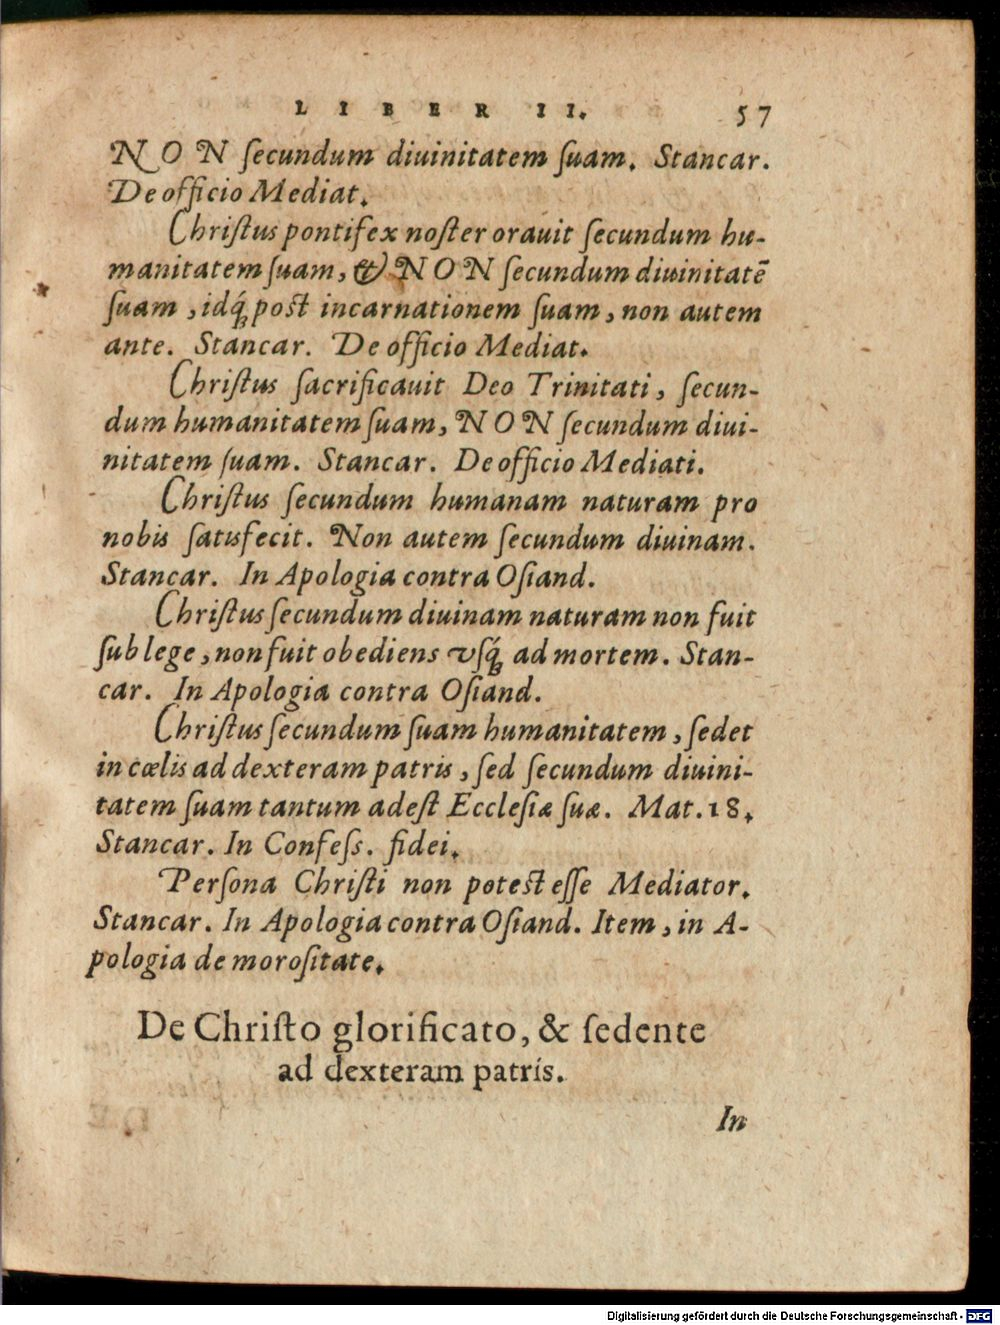 LIBER II. 57
NON ſecundum diuinitatem ſuam. Stancar.
De officio Mediat.
Chriſtus pontifex noſter orauit ſecundum hu-
manitatem ſuam, & NON ſecundum diuinitatē
ſuam, idq́; poſt incarnationem ſuam, non autem
ante. Stancar. De officio Mediat.
Chriſtus ſacrificauit Deo Trinitati, ſecun-
dum humanitatem ſuam, NON ſecundum diui-
nitatem ſuam. Stancar. De officio Mediati.
Chriſtus ſecundum humanam naturam pro
nobis ſatisfecit. Non autem ſecundum diuinam.
Stancar. In Apologia contra Oſiand.
Chriſtus ſecundum diuinam naturam non fuit
ſub lege, non fuit obediens vſq́; ad mortem. Stan-
car. In Apologia contra Oſiand.
Chriſtus ſecundum ſuam humanitatem, ſedet
in cœlis ad dexteram patris, ſed ſecundum diuini-
tatem ſuam tantum adeſt Eccleſiæ ſuæ. Mat. 18.
Stancar. In Confeſs. fidei.
Perſona Chriſti non poteſt eſſe Mediator.
Stancar. In Apologia contra Oſiand. Item, in A-
pologia de moroſitate.
De Chriſto glorificato, & ſedente
ad dexteram patris.
In
Digitalisierung gefördert durch die Deutsche Forschungsgemeinschaft - DFG